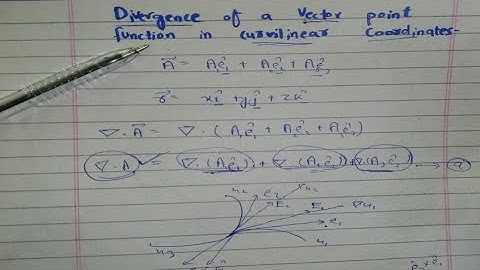 Divergence of a Vector point
function in curvilinear Coordinates-
A⃗ = A₁ê₁ + Aê₂ + Aê₃
r⃗ = xî + yĵ + zk̂
∇·A⃗ = ∇·(A₁ê₁ + A₂ê₂ + A₃ê₃)
∇·A = ∇·(A₁ê₁) + ∇·(A₂ê₂) + ∇·(A₃ê₃) → ⓐ
u₂ e₂ ∇u₂
E₂ E₁ ∇u₁
e₁
u₃ u₁